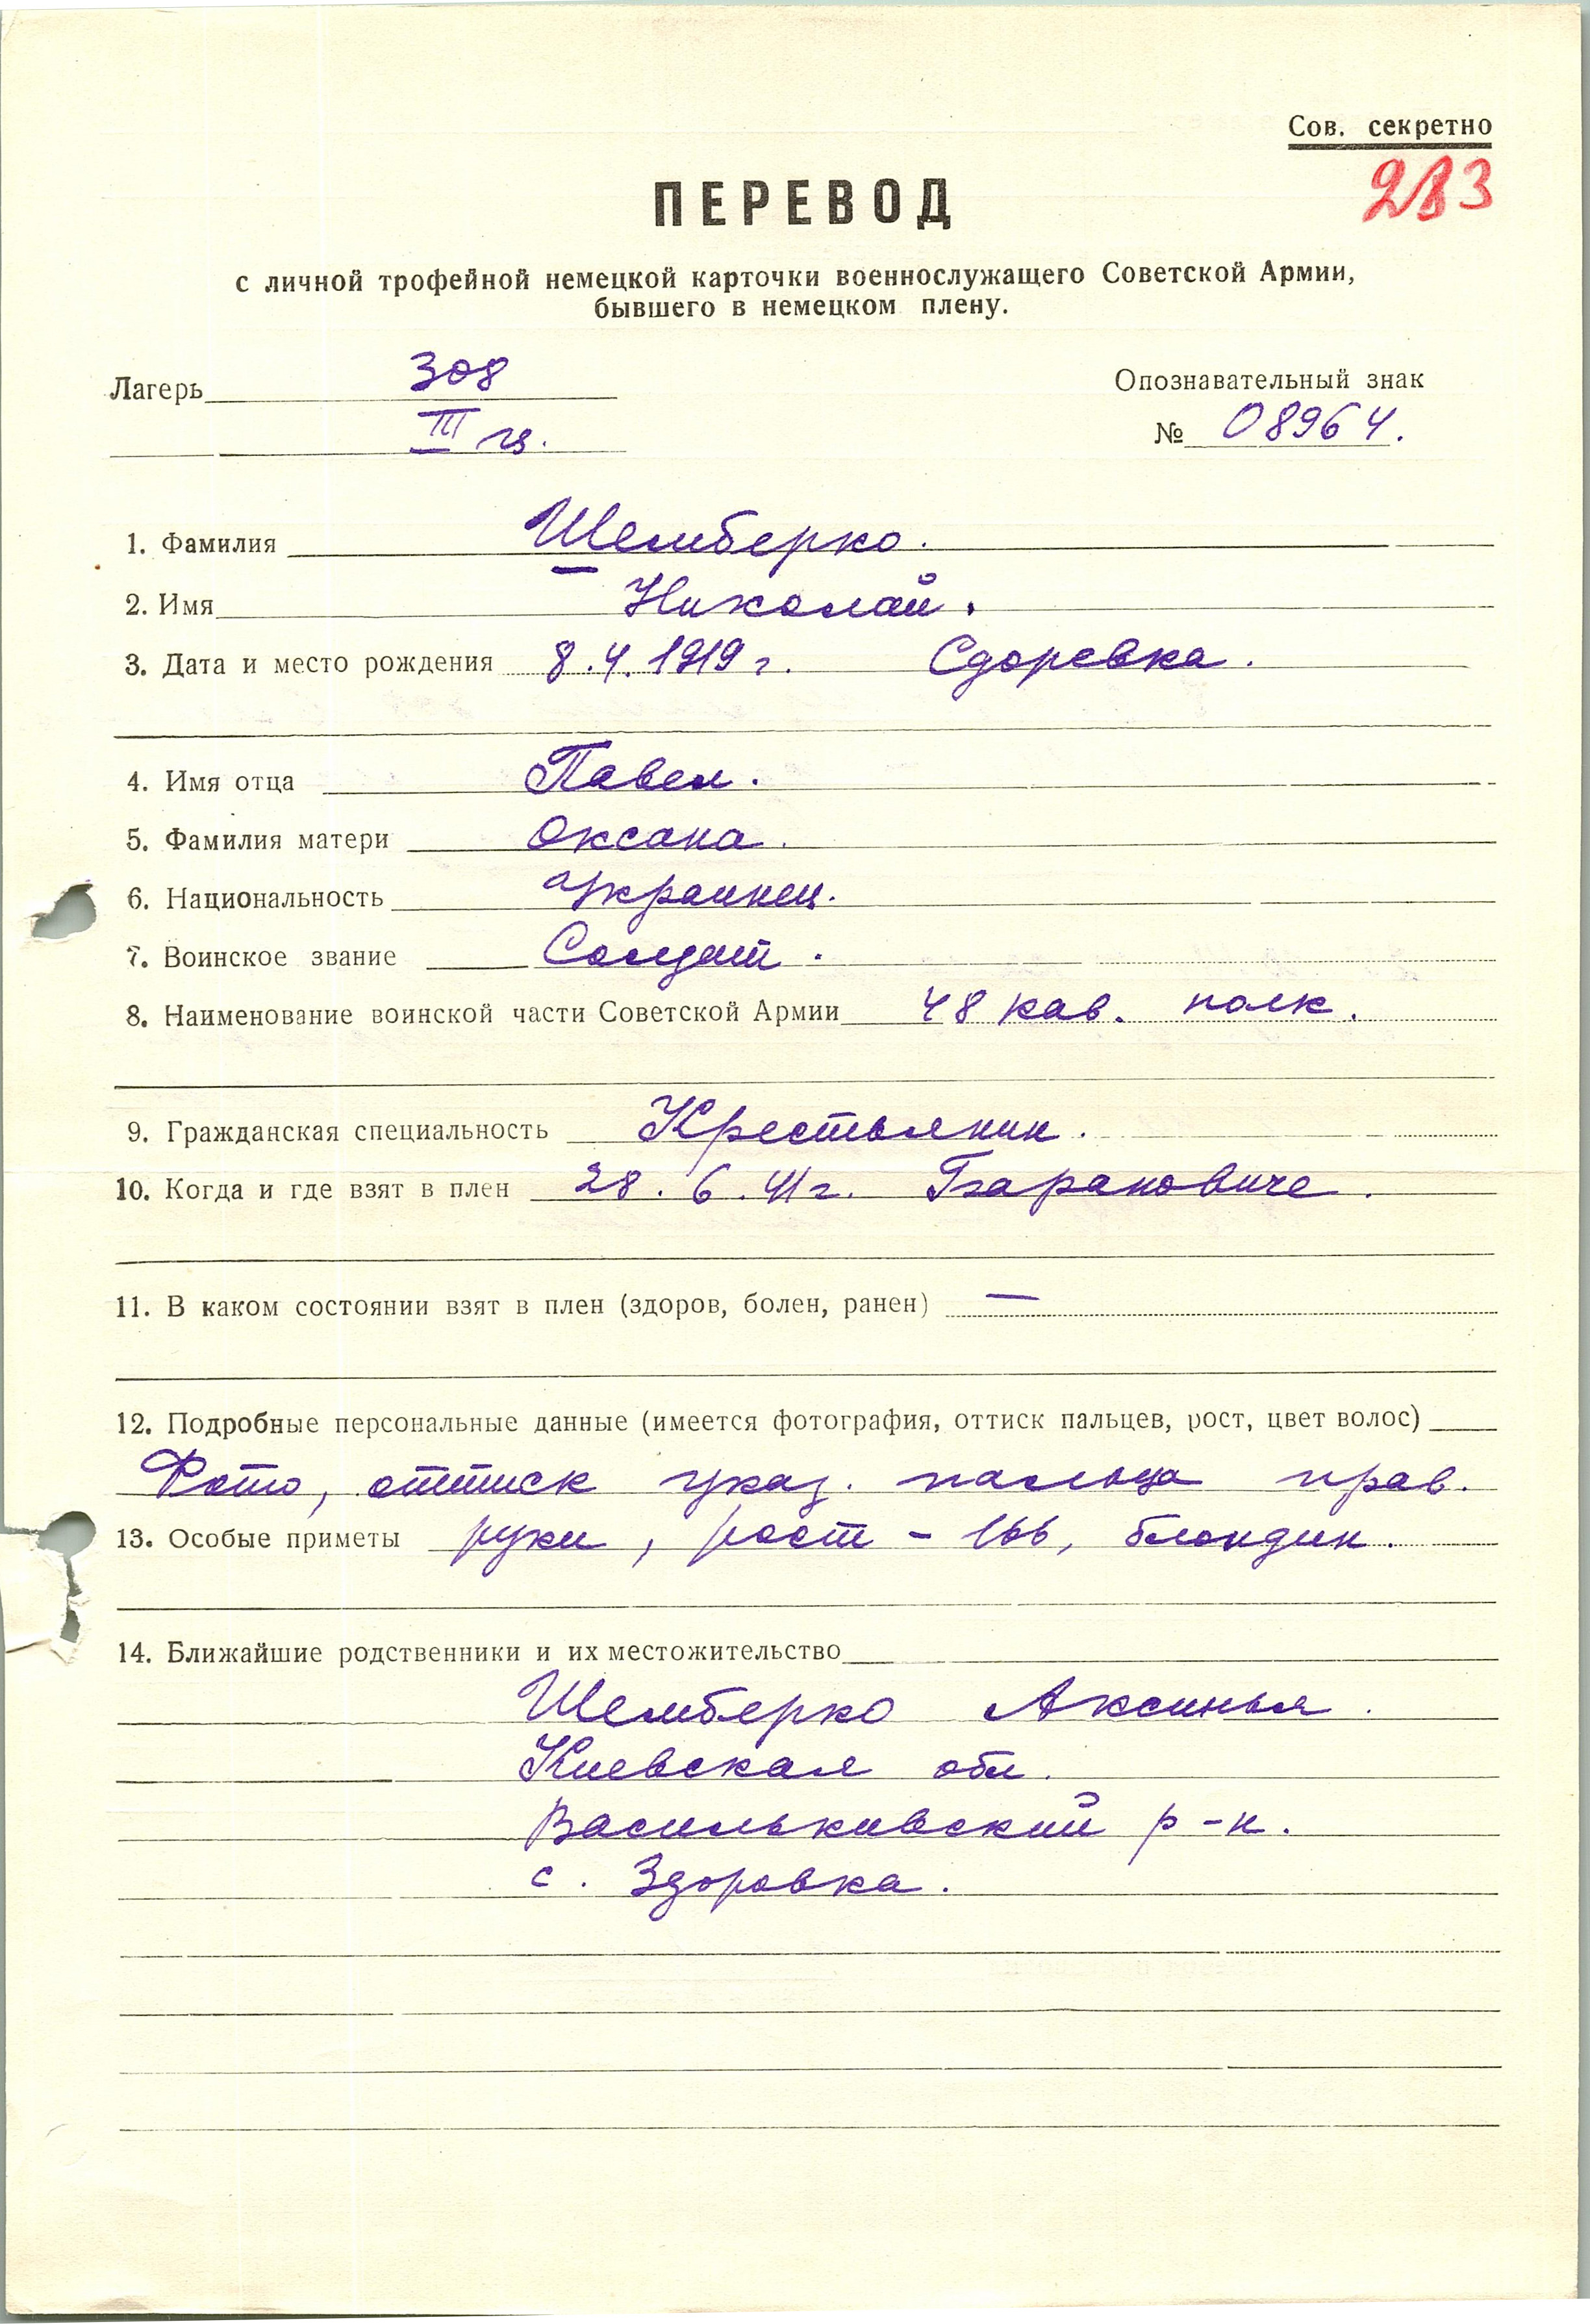 Сов. секретно
ПЕРЕВОД
с личной трофейной немецкой карточки военнослужащего Советской Армии,
бывшего в немецком плену.
Лагерь 308 Опознавательный знак
III № 08964.
1. Фамилия Шемберко.
2. Имя Николай.
3. Дата и место рождения 8.4.1919 г. Сдоревка.
4. Имя отца Павел.
5. Фамилия матери Оксана.
6. Национальность Украинец.
7. Воинское звание Солдат.
8. Наименование воинской части Советской Армии 48 кав. полк.
9. Гражданская специальность Крестьянин.
10. Когда и где взят в плен 28.6.41г. Барановиче.
11. В каком состоянии взят в плен (здоров, болен, ранен) —
12. Подробные персональные данные (имеется фотография, оттиск пальцев, рост, цвет волос)
Фото, оттиск указ. пальца прав.
13. Особые приметы руки, рост - 166, блондин.
14. Ближайшие родственники и их местожительство
Шемберко Аксинья.
Киевская обл.
Васильковский р-н.
с. Здоровка.